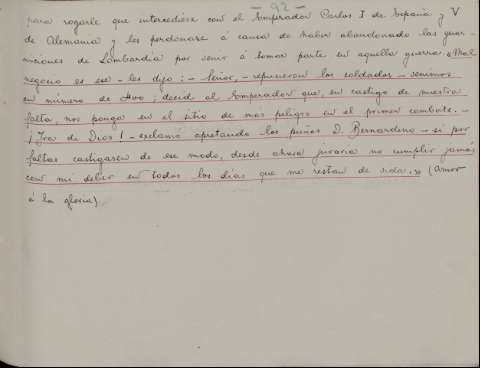 - 92 -
para rogarle que intercediese con el Emperador Carlos I de España y V
de Alemania y les perdonase á causa de haber abandonado las guar-
niciones de Lombardía por venir á tomar parte en aquella guerra. «Mal
negocio es ese - les dijo; - Señor, - repusieron los soldados - venimos
en número de 400; decid al Emperador que, en castigo de nuestra
falta, nos ponga en el sitio de más peligro en el primer combate. -
¡Ira de Dios! - exclamó apretando los puños D. Bernardino - si por
faltas castigasen de ese modo, desde ahora juraría no cumplir jamás
con mi deber en todos los días que me restan de vida.» (Amor
á la gloria)